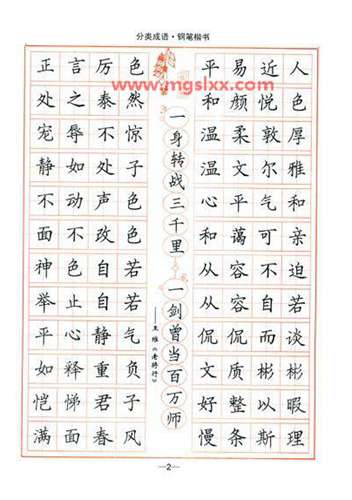 分类成语·钢笔楷书
www.mgslxx.com
正言厉色
处之泰然
宠辱不惊
静如处子
不动声色
面不改色
神色自若
举止自若
平心静气
如释重负
恺悌君子
满面春风
一身转战三千里
一剑曾当百万师
——王维《老将行》
平易近人
和颜悦色
温柔敦厚
温文尔雅
心平气和
和蔼可亲
从容不迫
从容自若
侃侃而谈
文质彬彬
好整以暇
慢条斯理
—2—